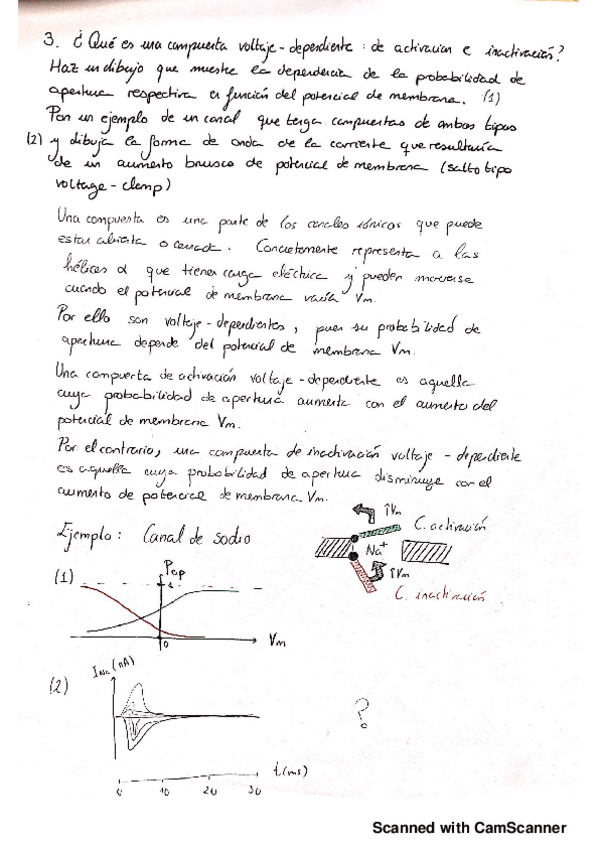 3. ¿Qué es una compuerta voltaje-dependiente: de activación e inactivación?
Haz un dibujo que muestre la dependencia de la probabilidad de
apertura respectiva en función del potencial de membrana. (1)
Pon un ejemplo de un canal que tenga compuertas de ambos tipos
(2) y dibuja la forma de onda de la corriente que resultaría
de un aumento brusco de potencial de membrana (salto tipo
voltage-clamp)
Una compuerta es una parte de los canales iónicos que puede
estar abierta o cerrada. Concretamente representa a las
hélices α que tienen carga eléctrica y pueden moverse
cuando el potencial de membrana varía Vm.
Por ello son voltaje-dependientes, pues su probabilidad de
apertura depende del potencial de membrana Vm.
Una compuerta de activación voltaje-dependiente es aquella
cuya probabilidad de apertura aumenta con el aumento del
potencial de membrana Vm.
Por el contrario, una compuerta de inactivación voltaje-dependiente
es aquella cuya probabilidad de apertura disminuye con el
aumento de potencial de membrana Vm.
Ejemplo: Canal de sodio
↑Vm
C. activación
Na+
↑Vm
C. inactivación
(1)
Pop
1
0
Vm
(2)
INa (nA)
?
t(ms)
0 10 20 30
Scanned with CamScanner